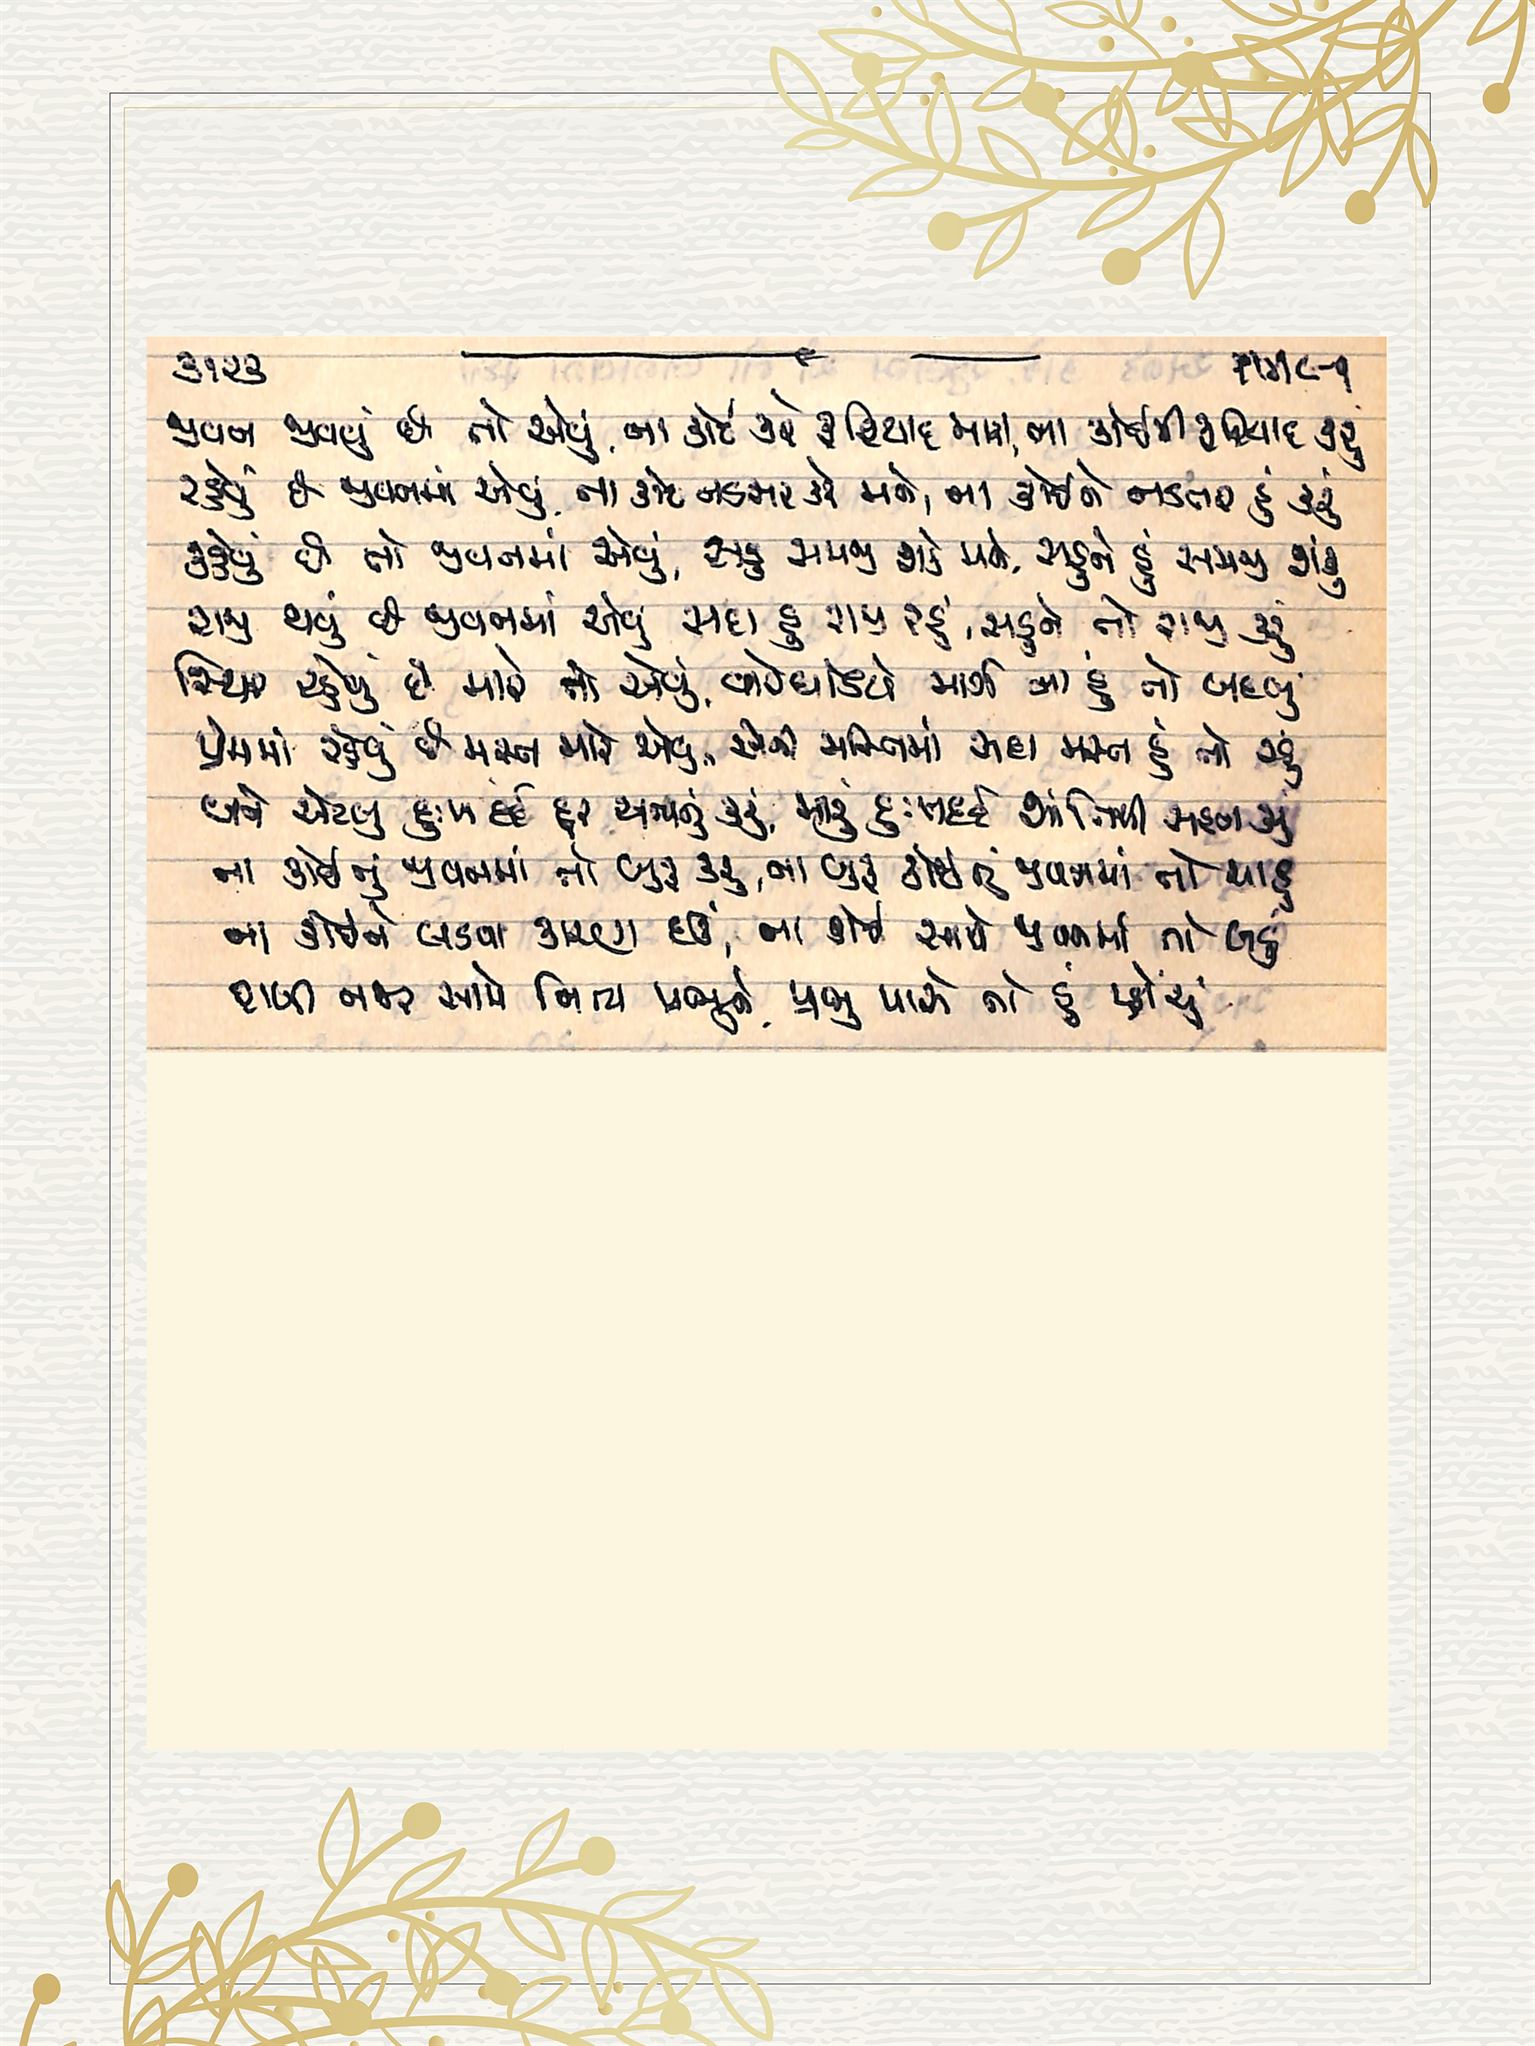 ૩૧૨૩
જીવન જીવવું છે તો એવું, ના કોઈ કરે ફરિયાદ મારી, ના કોઈની ફરિયાદ કરું
રહેવું છે જીવનમાં એવું, ના કોઈ નડતર કરે મને, ના કોઈને નડતર હું કરું
કહેવું છે તો જીવનમાં એવું, સહુ સમજી શકે મને, સહુને હું સમજી શકું
રાજી થવું છે જીવનમાં એવું સદા હું રાજી રહું, સહુને તો રાજી કરું
સ્થિર રહેવું છે મારે તો એવું, વારેઘડીએ માર્ગ ના હું તો બદલું
પ્રેમમાં રહેવું છે મસ્ત મારે એવું, એની મસ્તિમાં સદા મસ્ત હું તો રહું
બને એટલું દુઃખ દર્દ દૂર અન્યનું કરું, મારું દુઃખદર્દ શાંતિથી સહન કરું
ના કોઈનું જીવનમાં તો બુરૂ કરું, ના બુરૂ કોઈનું જીવનમાં તો ચાહું
ના કોઈને લડવા કારણ દઉં, ના કોઈ સાથે જીવનમાં તો લડું
રાખી નજર સામે નિત્ય પ્રભુને, પ્રભુ પાસે તો હું પ્હોંચું